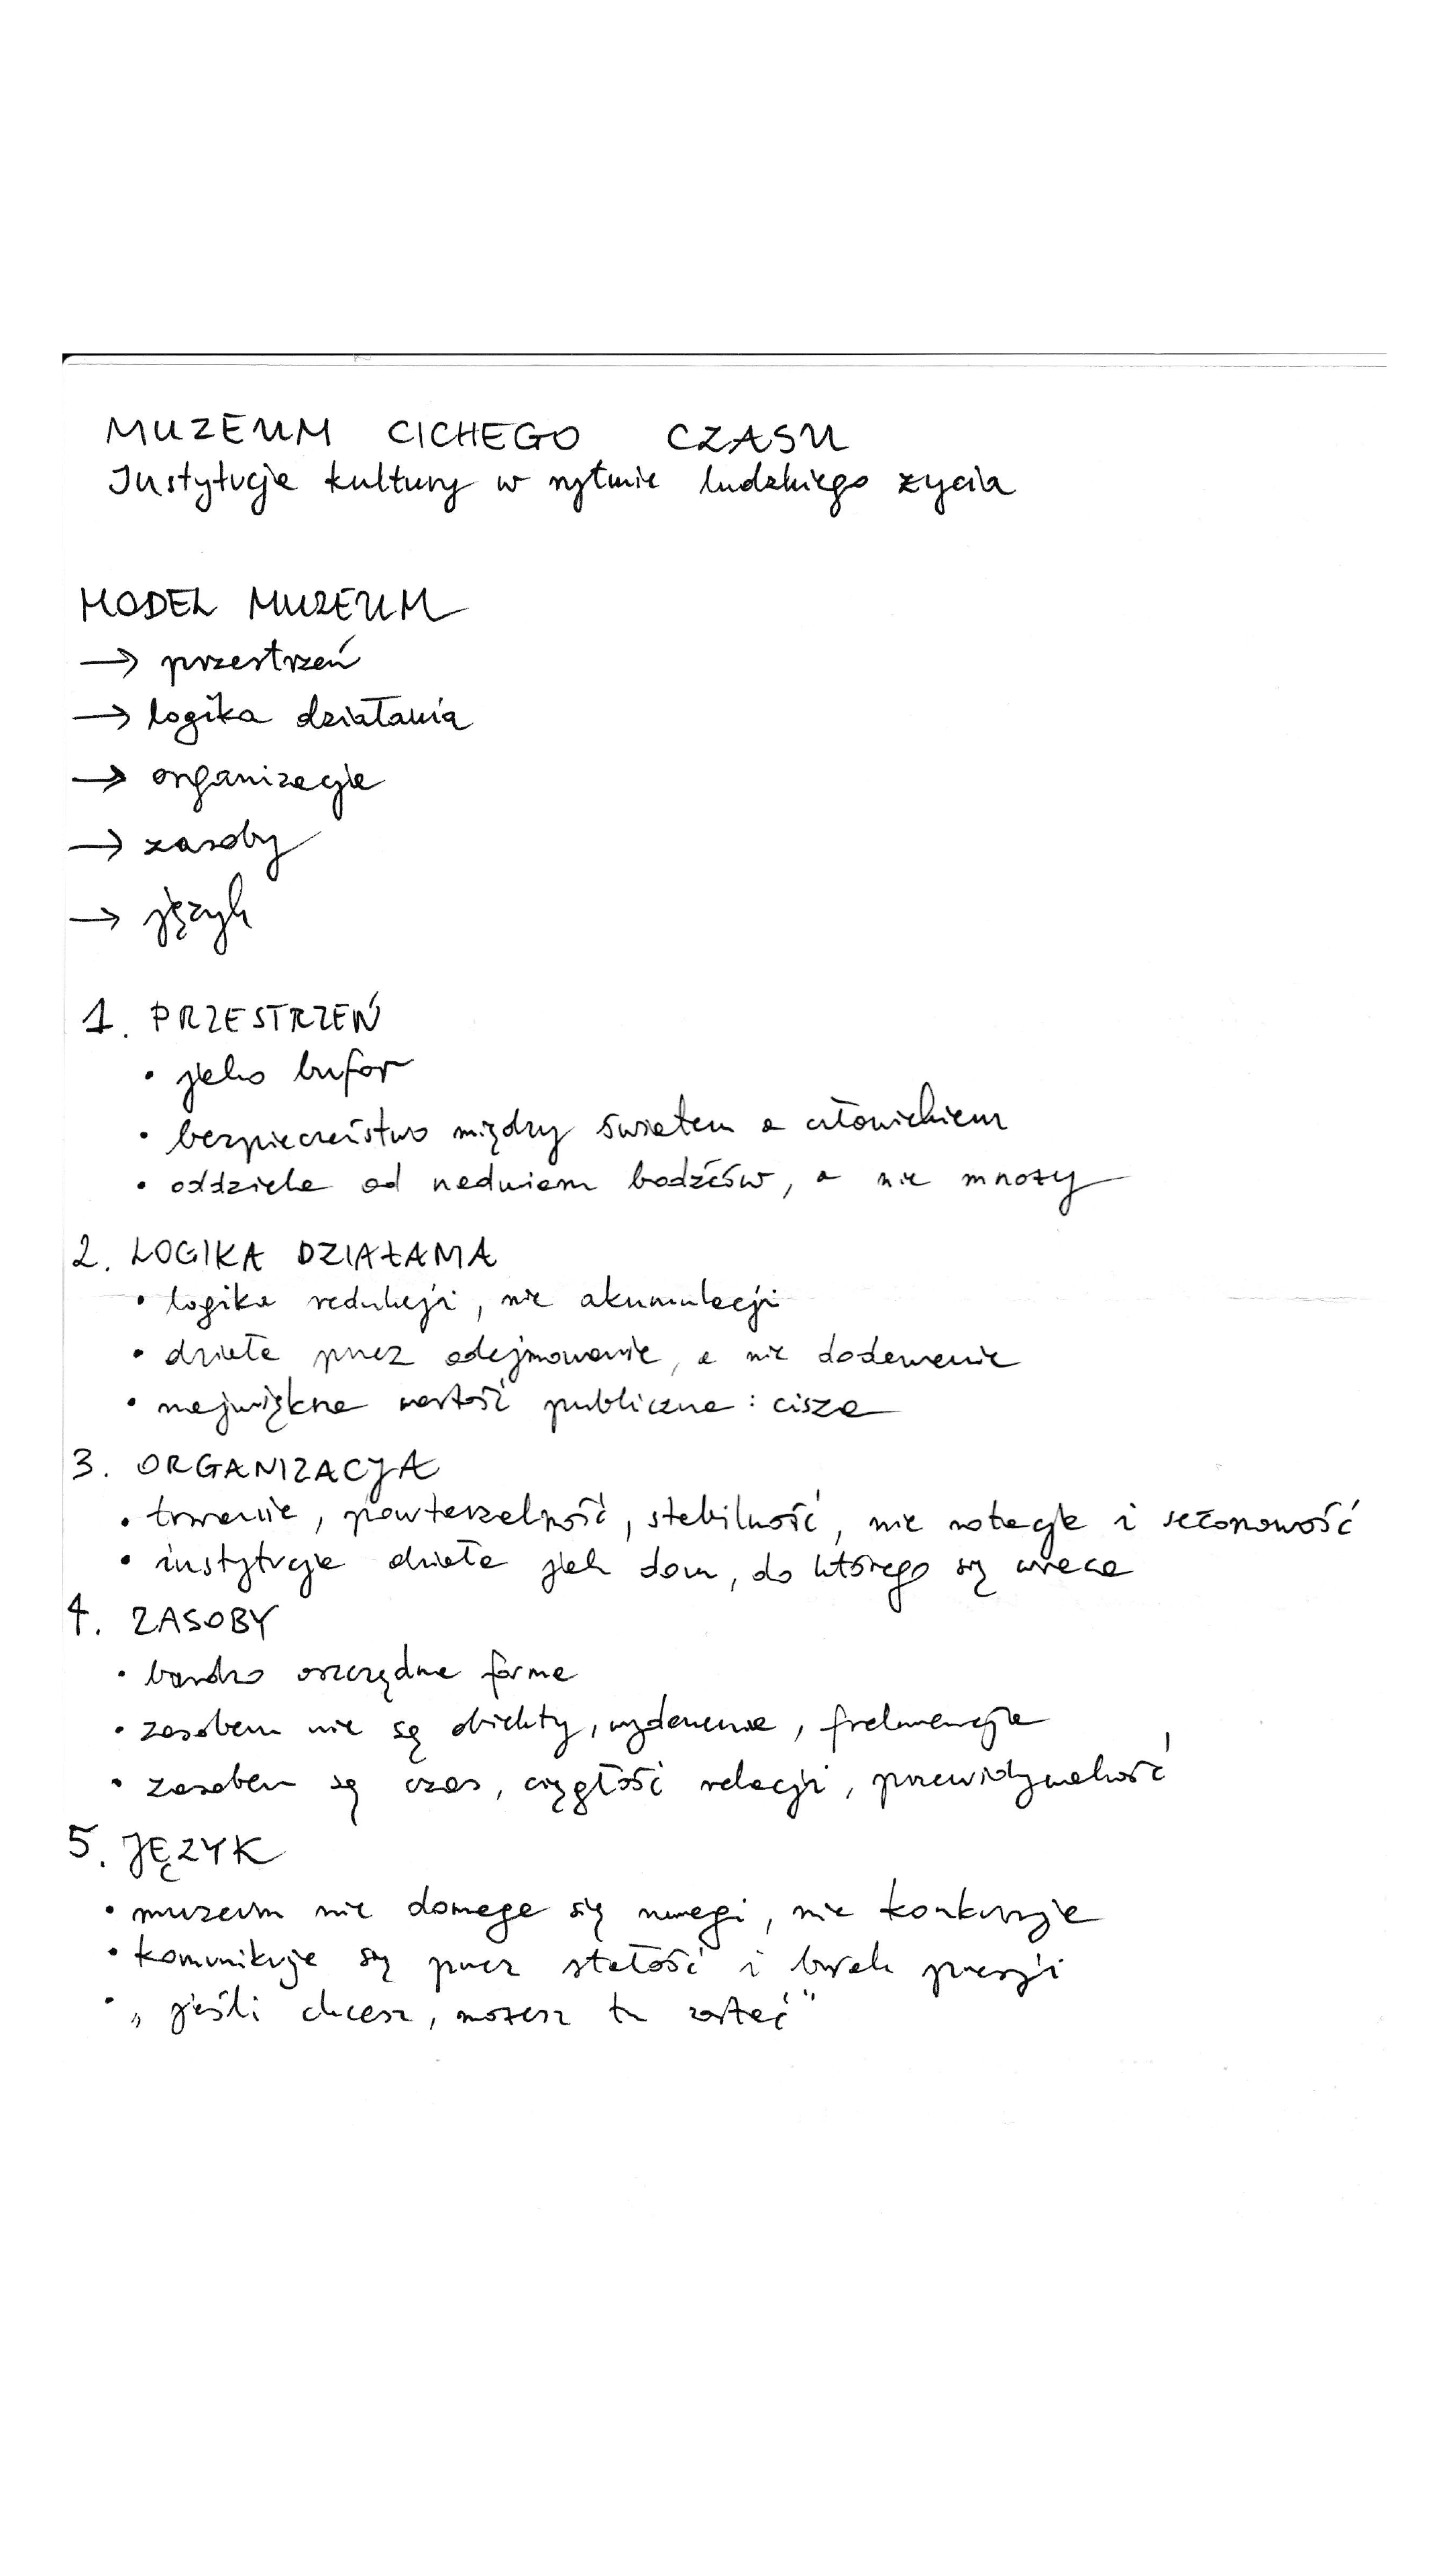 MUZEUM CICHEGO CZASU
Instytucja kultury w rytmie ludzkiego życia
MODEL MUZEUM
→ przestrzeń
→ logika działania
→ organizacja
→ zasoby
→ język
1. PRZESTRZEŃ
• jako bufor
• bezpieczeństwo między światem a człowiekiem
• oddziela od nadmiaru bodźców, a nie mnoży
2. LOGIKA DZIAŁANIA
• logika redukcji, nie akumulacji
• działa przez odejmowanie, a nie dodawanie
• największa wartość publiczna: cisza
3. ORGANIZACJA
• trwanie, powtarzalność, stabilność, nie rotacja i sezonowość
• instytucja działa jak dom, do którego się wraca
4. ZASOBY
• bardzo oszczędna forma
• zasobem nie są obiekty, wydarzenia, frekwencja
• zasobem są czas, ciągłość relacji, przewidywalność
5. JĘZYK
• muzeum nie domaga się uwagi, nie konkuruje
• komunikuje się przez stałość i brak presji
• „jeśli chcesz, możesz tu zostać"